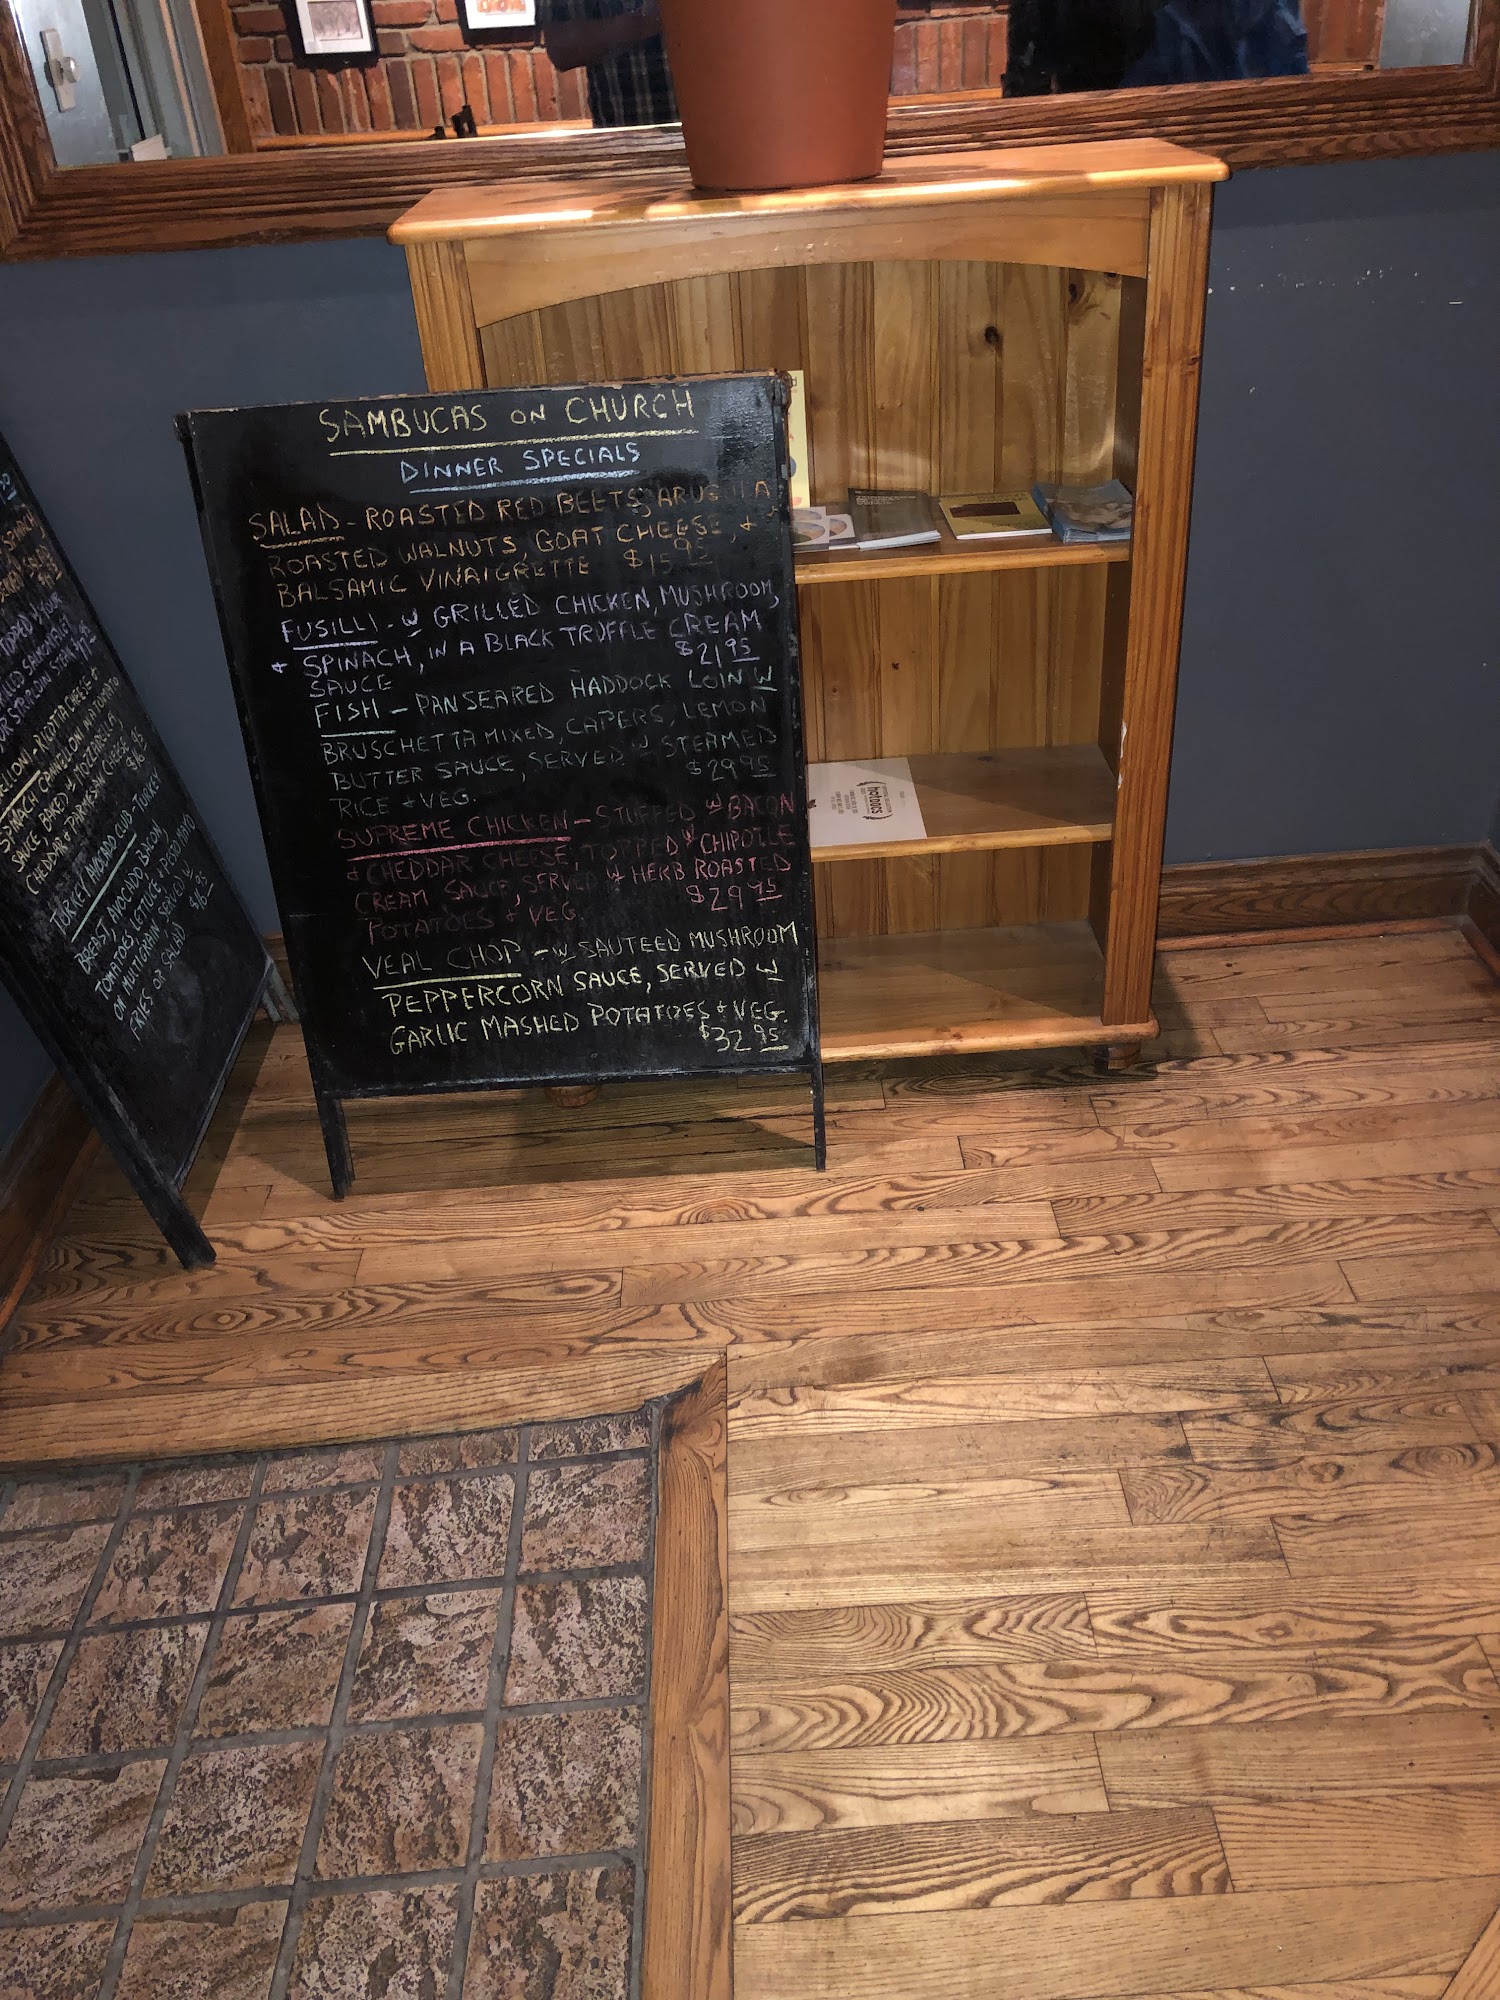 SAMBUCAS ON CHURCH
DINNER SPECIALS
SALAD - ROASTED RED BEETS,
ROASTED WALNUTS, GOAT CHEESE, +
BALSAMIC VINAIGRETTE $15.95
FUSILLI - W GRILLED CHICKEN, MUSHROOM,
+ SPINACH, IN A BLACK TRUFFLE CREAM
SAUCE $21.95
FISH - PANSEARED HADDOCK LOIN W
BRUSCHETTA MIXED, CAPERS, LEMON
BUTTER SAUCE, SERVED W STEAMED
RICE + VEG. $29.95
SUPREME CHICKEN - STUFFED W BACON
+ CHEDDAR CHEESE, TOPPED W CHIPOTLE
CREAM SAUCE, SERVED W HERB ROASTED
POTATOES + VEG. $29.95
VEAL CHOP - W SAUTEED MUSHROOM
PEPPERCORN SAUCE, SERVED W
GARLIC MASHED POTATOES + VEG.
$32.95
SPINACH
YOUR
SALMON
STEAK
RICOTTA CHEESE +
SPINACH CANNELONI IN TOMATO
SAUCE BAKED W MOZZARELLA,
CHEDDAR + PARMESAN CHEESE
TURKEY AVOCADO CLUB - TURKEY
BREAST, AVOCADO, BACON,
TOMATOES, LETTUCE + PESTO MAYO
ON MULTIGRAIN SERVED W
FRIES OR SALAD $16.95
hotdocs